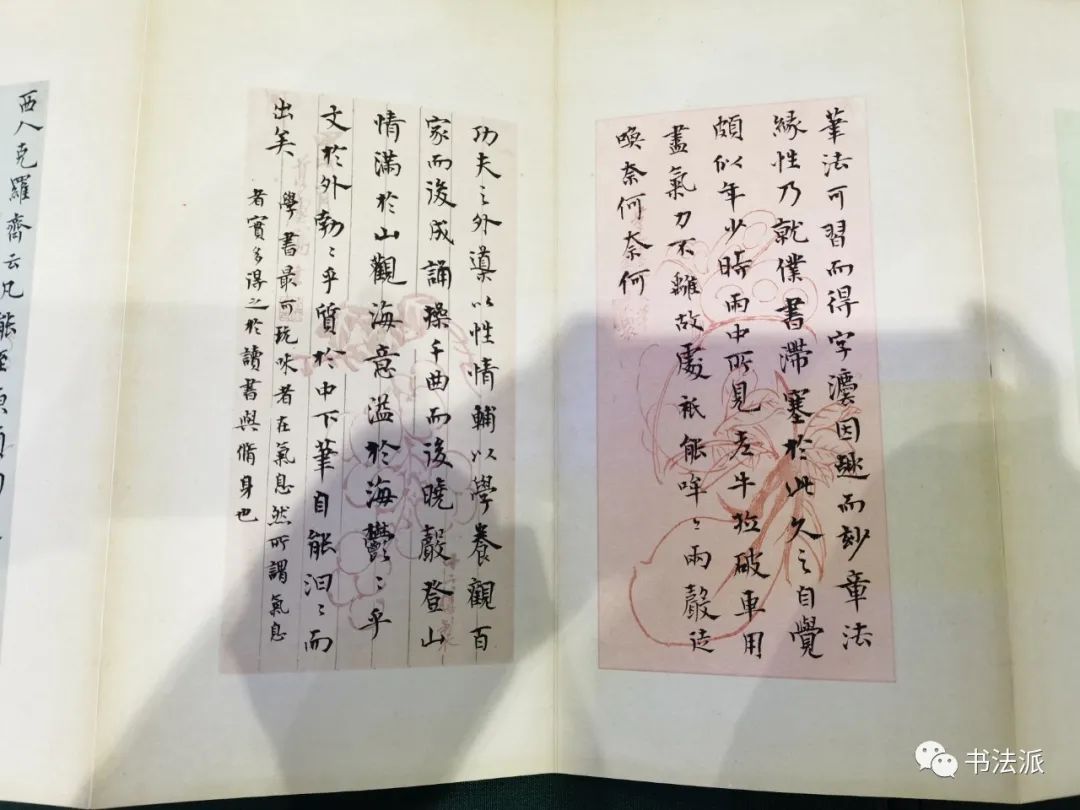 筆法可習而得字灋因趣而妙章法
緣性乃就僕書滯塞於此久之自覺
頗似年少時雨中所見老牛拉破車用
盡氣力不離故處祇能哞〻兩聲徒
喚奈何奈何
功夫之外導以性情輔以學養觀百
家而後成誦操千曲而後曉聲登山
情滿於山觀海意溢於海鬱〻乎
文於外勃〻乎質於中下筆自能汩〻而
出矣
學書最可玩味者在氣息然所謂氣息
者實多得之於讀書與脩身也
西人克羅齊云凡能
书法派